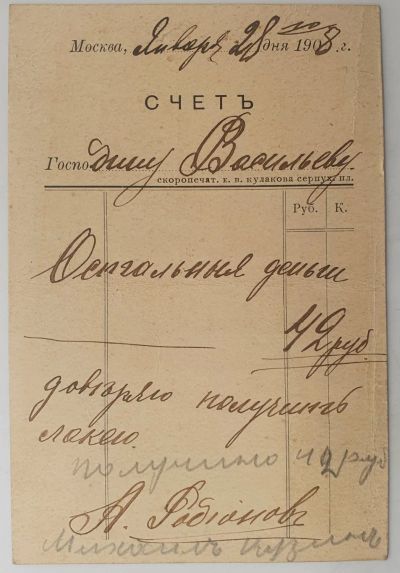 Москва, Января 28го дня 1908 г.
СЧЕТЪ
Господину Васильеву.
скоропечат. к. в. кулакова серпух. пл.
Руб. К.
Остальныя деньги
42 руб
доверяю получить
лакею
получино 42 руб
А. Родионовъ
Михаилъ